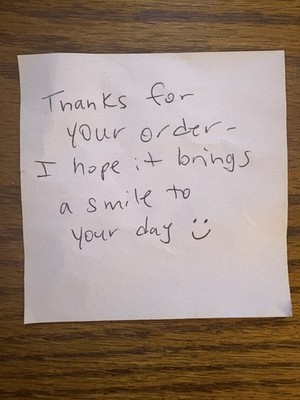 Thanks for
your order-
I hope it brings
a smile to
your day :)